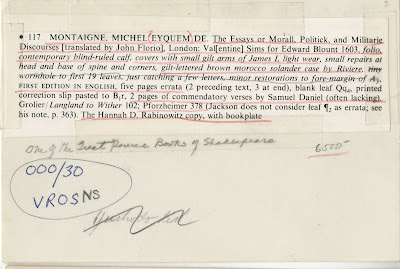 • 117 MONTAIGNE, MICHEL EYQUEM DE. The Essays or Morall, Politick, and Militarie
Discourses [translated by John Florio], London: Val[entine] Sims for Edward Blount 1603, folio,
contemporary blind-ruled calf, covers with small gilt arms of James I, light wear, small repairs at
head and base of spine and corners, gilt-lettered brown morocco solander case by Riviere, tiny
wormhole to first 19 leaves, just catching a few letters, minor restorations to fore-margin of
FIRST EDITION IN ENGLISH, five pages errata (2 preceding text, 3 at end), blank leaf Qq₆, printed
correction slip pasted to B₁r, 2 pages of commendatory verses by Samuel Daniel (often lacking),
Grolier/Langland to Wither 102; Pforzheimer 378 (Jackson does not consider leaf ¶₂ as errata; see
his note, p. 363). The Hannah D. Rabinowitz copy, with bookplate
One of the Great Source Books of Shakespeare
6500-
000/30
VROSNS